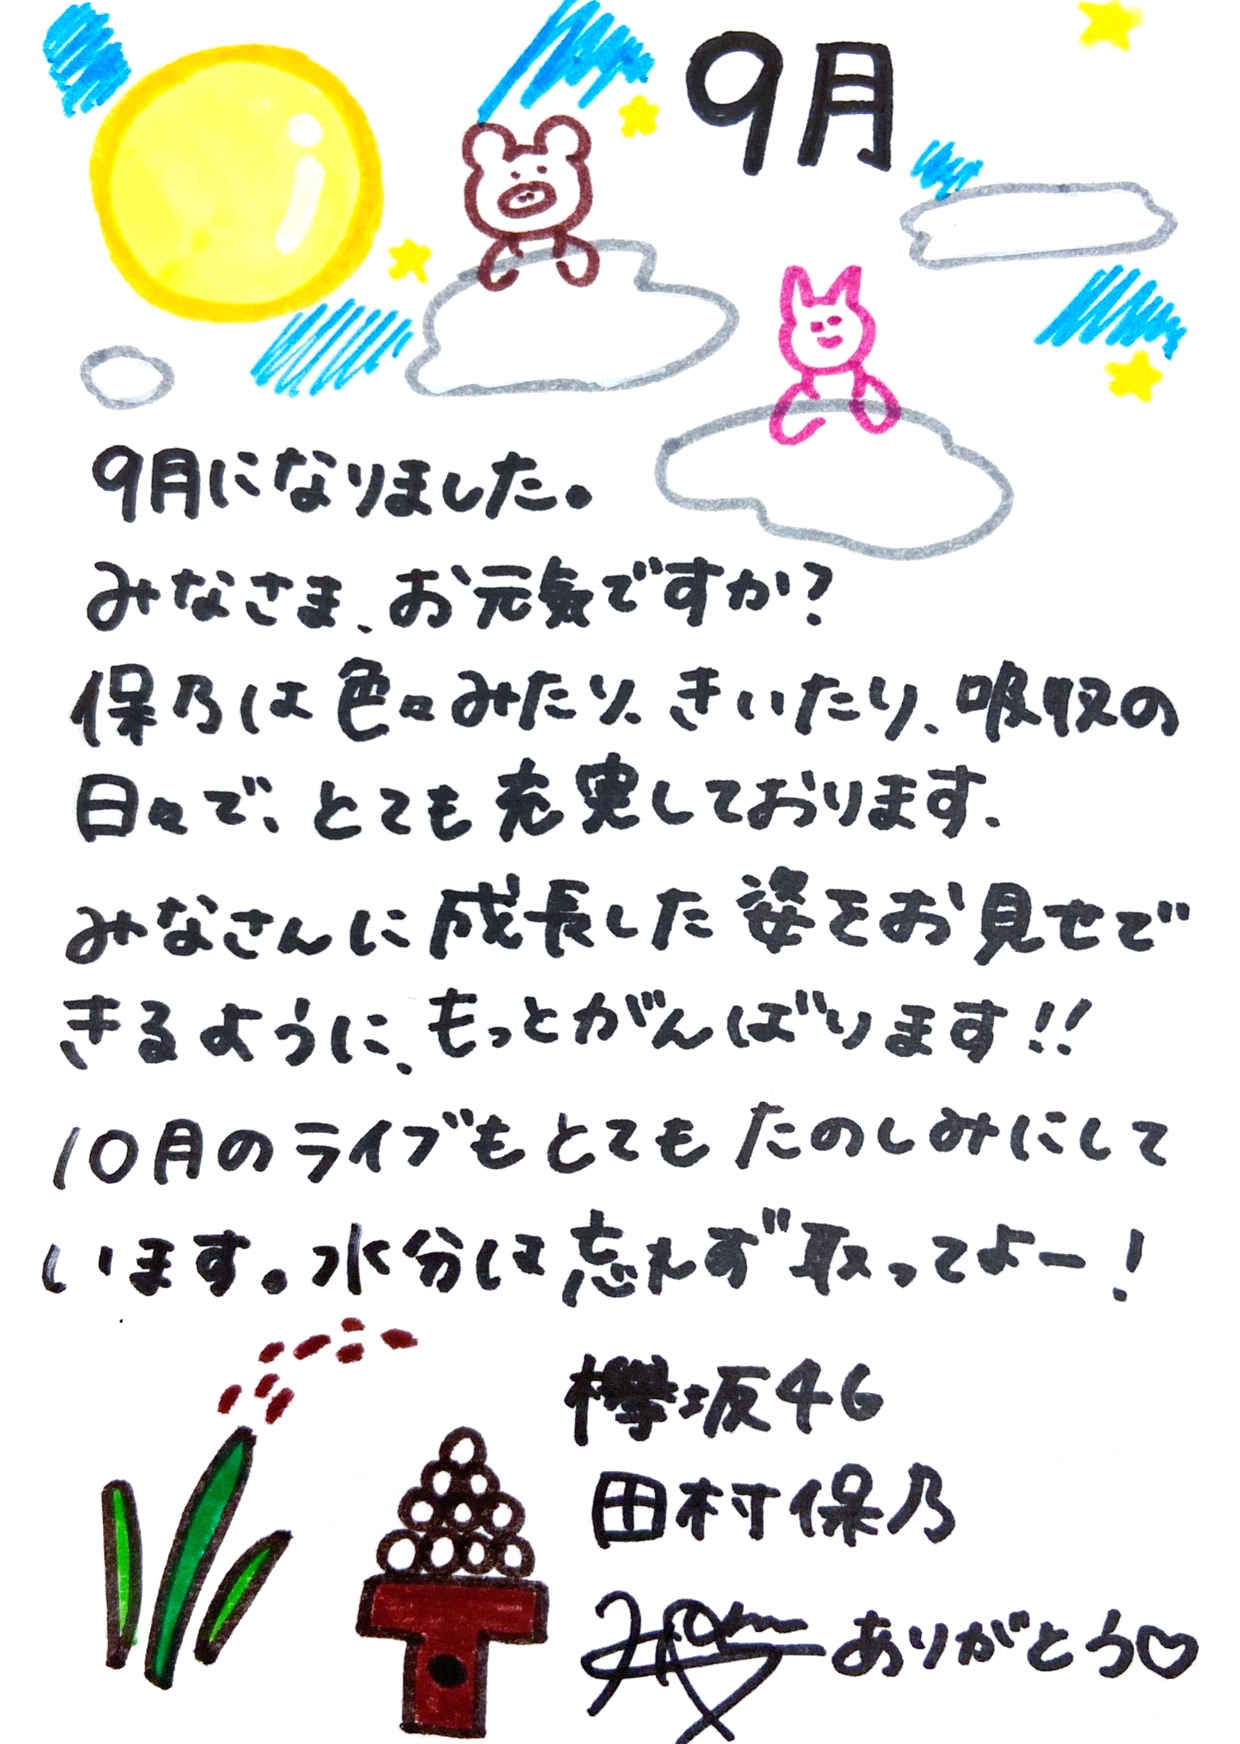 9月
9月になりました。
みなさま、お元気ですか?
保乃は色々みたり、きいたり、吸収の
日々で、とても充実しております、
みなさんに成長した姿をお見せで
きるように、もっとがんばります!!
10月のライブもとてもたのしみにして
います。水分は忘れず取ってよー!
欅坂46
田村保乃
ありがとう♡